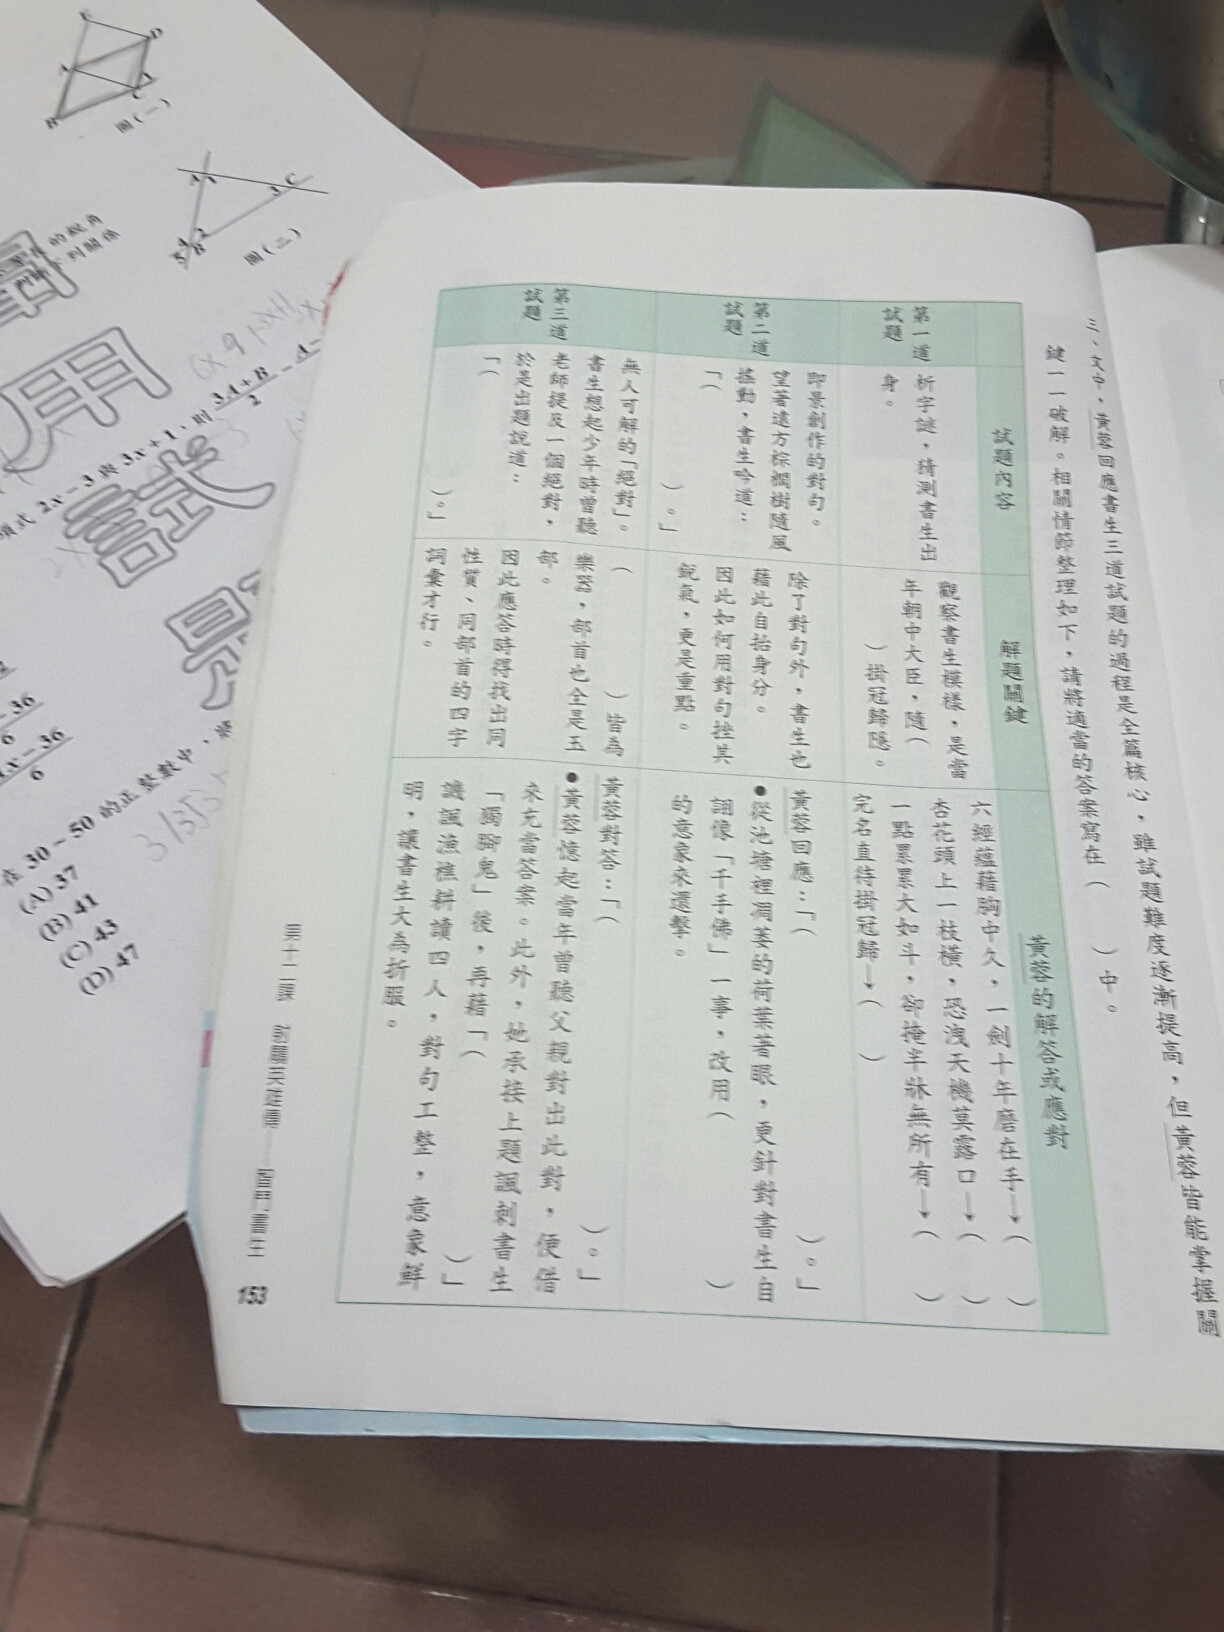 三、文中，黃蓉回應書生三道試題的過程是全篇核心，雖試題難度逐漸提高，但黃蓉皆能掌握關
鍵一一破解。相關情節整理如下，請將適當的答案寫在（　）中。
試題內容
解題關鍵
黃蓉的解答或應對
第一道
試題
析字謎，猜測書生出
身。
觀察書生模樣，是當
年朝中大臣，隨（
）掛冠歸隱。
六經蘊藉胸中久，一劍十年磨在手→（　）
杏花頭上一枝橫，恐洩天機莫露口→（　）
一點累累大如斗，卻掩半牀無所有→（　）
完名直待掛冠歸→（　）
第二道
試題
即景創作的對句。
望著遠方棕櫚樹隨風
搖動，書生吟道：
「（
）。」
除了對句外，書生也
藉此自抬身分。
因此如何用對句挫其
銳氣，更是重點。
黃蓉回應：「（　）。」
●從池塘裡凋萎的荷葉著眼，更針對書生自
詡像「千手佛」一事，改用（　）
的意象來還擊。
第三道
試題
無人可解的「絕對」。
書生想起少年時曾聽
老師提及一個絕對，
於是出題說道：
「（
）。」
（　）皆為
樂器，部首也全是玉
部。
因此應答時得找出同
性質、同部首的四字
詞彙才行。
黃蓉對答：「（　）。」
●黃蓉憶起當年曾聽父親對出此對，便借
來充當答案。此外，她承接上題諷刺書生
「獨腳鬼」後，再藉「（　）」
譏諷漁樵耕讀四人，對句工整，意象鮮
明，讓書生大為折服。
第十二課　射鵰英雄傳——智鬥書生
153
D
A
C
B
圖（一）
A
1
3
C
2
B
圖（二）
的銳角
列關係
用
試
項式 2x－3 與 3x＋1，則
3A＋B
2
36
6
x－36
6
在 30～50 的正整數中，
(A) 37
(B) 41
(C) 43
(D) 47